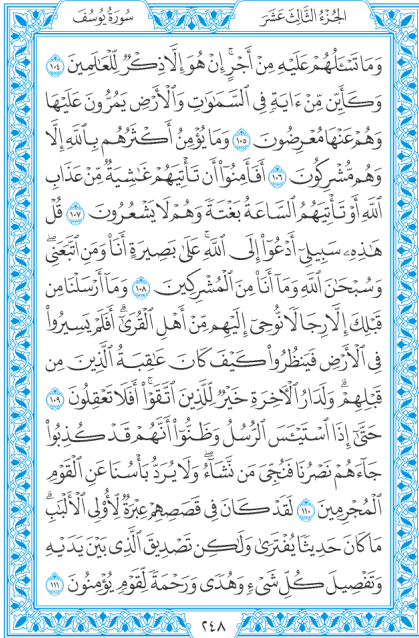 سُورَةُ يُوسُفَ الجُزْءُ الثَّالِثَ عَشَرَ
وَمَا تَسْـَٔلُهُمْ عَلَيْهِ مِنْ أَجْرٍۚ إِنْ هُوَ إِلَّا ذِكْرٌ لِّلْعَٰلَمِينَ ١٠٤
وَكَأَيِّن مِّنْ ءَايَةٍ فِي ٱلسَّمَٰوَٰتِ وَٱلْأَرْضِ يَمُرُّونَ عَلَيْهَا
وَهُمْ عَنْهَا مُعْرِضُونَ ١٠٥ وَمَا يُؤْمِنُ أَكْثَرُهُم بِٱللَّهِ إِلَّا
وَهُم مُّشْرِكُونَ ١٠٦ أَفَأَمِنُوٓا۟ أَن تَأْتِيَهُمْ غَٰشِيَةٌ مِّنْ عَذَابِ
ٱللَّهِ أَوْ تَأْتِيَهُمُ ٱلسَّاعَةُ بَغْتَةً وَهُمْ لَا يَشْعُرُونَ ١٠٧ قُلْ
هَٰذِهِۦ سَبِيلِيٓ أَدْعُوٓا۟ إِلَى ٱللَّهِۚ عَلَىٰ بَصِيرَةٍ أَنَا۠ وَمَنِ ٱتَّبَعَنِيۖ
وَسُبْحَٰنَ ٱللَّهِ وَمَآ أَنَا۠ مِنَ ٱلْمُشْرِكِينَ ١٠٨ وَمَآ أَرْسَلْنَا مِن
قَبْلِكَ إِلَّا رِجَالًا نُّوحِيٓ إِلَيْهِم مِّنْ أَهْلِ ٱلْقُرَىٰٓۗ أَفَلَمْ يَسِيرُوا۟
فِي ٱلْأَرْضِ فَيَنظُرُوا۟ كَيْفَ كَانَ عَٰقِبَةُ ٱلَّذِينَ مِن
قَبْلِهِمْۗ وَلَدَارُ ٱلْءَاخِرَةِ خَيْرٌ لِّلَّذِينَ ٱتَّقَوْا۟ۚ أَفَلَا تَعْقِلُونَ ١٠٩
حَتَّىٰٓ إِذَا ٱسْتَيْـَٔسَ ٱلرُّسُلُ وَظَنُّوٓا۟ أَنَّهُمْ قَدْ كُذِبُوا۟
جَآءَهُمْ نَصْرُنَا فَنُجِّيَ مَن نَّشَآءُۖ وَلَا يُرَدُّ بَأْسُنَا عَنِ ٱلْقَوْمِ
ٱلْمُجْرِمِينَ ١١٠ لَقَدْ كَانَ فِي قَصَصِهِمْ عِبْرَةٌ لِّأُو۟لِي ٱلْأَلْبَٰبِۗ
مَا كَانَ حَدِيثًا يُفْتَرَىٰ وَلَٰكِن تَصْدِيقَ ٱلَّذِي بَيْنَ يَدَيْهِ
وَتَفْصِيلَ كُلِّ شَيْءٍ وَهُدًى وَرَحْمَةً لِّقَوْمٍ يُؤْمِنُونَ ١١١
٢٤٨